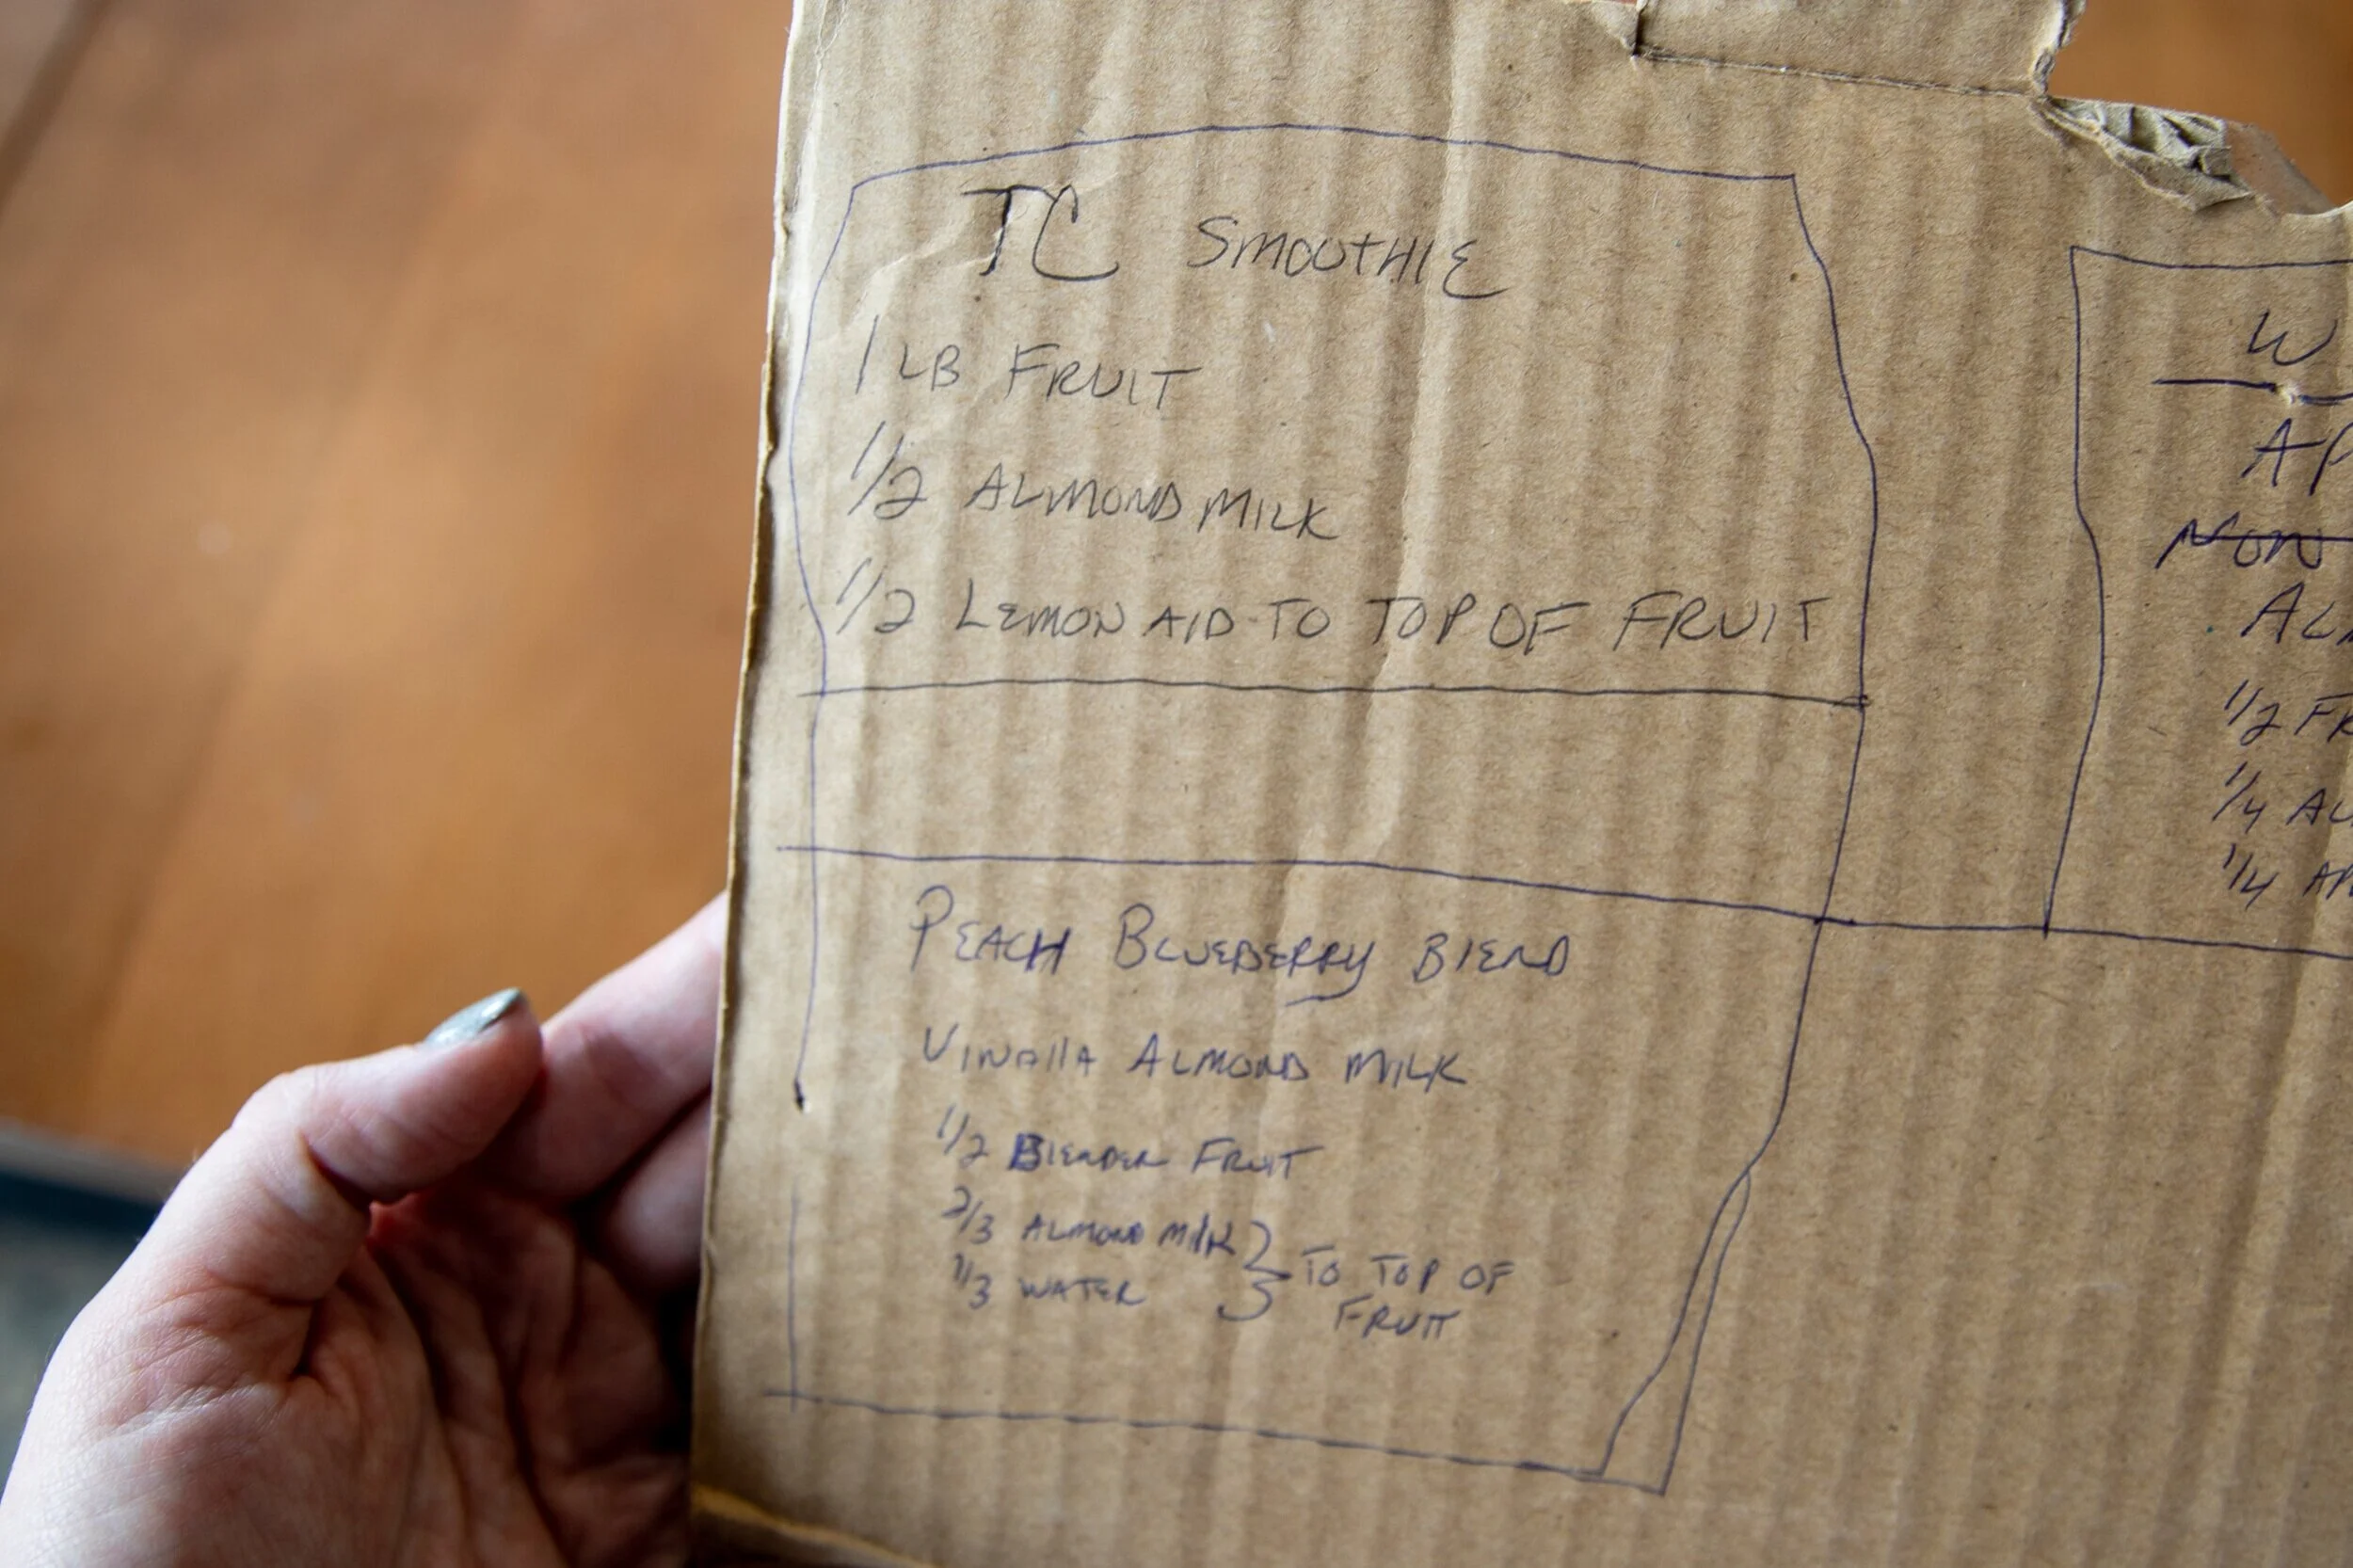 TC SMOOTHIE
1 LB FRUIT
1/2 ALMOND MILK
1/2 LEMON AID TO TOP OF FRUIT
PEACH BLUEBERRY BLEND
VINALLA ALMOND MILK
1/2 BLENDER FRUIT
2/3 ALMOND MILK
1/3 WATER
TO TOP OF
FRUIT
W
AP
NON
AL
1/2 FR
1/4 AL
1/4 AP